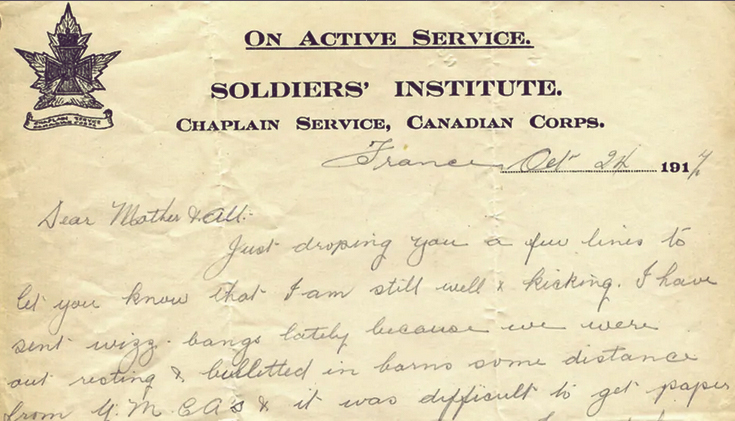 ON ACTIVE SERVICE.
SOLDIERS' INSTITUTE.
CHAPLAIN SERVICE, CANADIAN CORPS.
CHAPLAIN SERVICE
CANADIAN CORPS
France Oct 24 1917
Dear Mother & All:-
Just droping you a few lines to
let you know that I am still well & kicking. I have
sent wizz-bangs lately because we were
out resting & billetted in barns some distance
from Y.M.C.A's & it was difficult to get paper